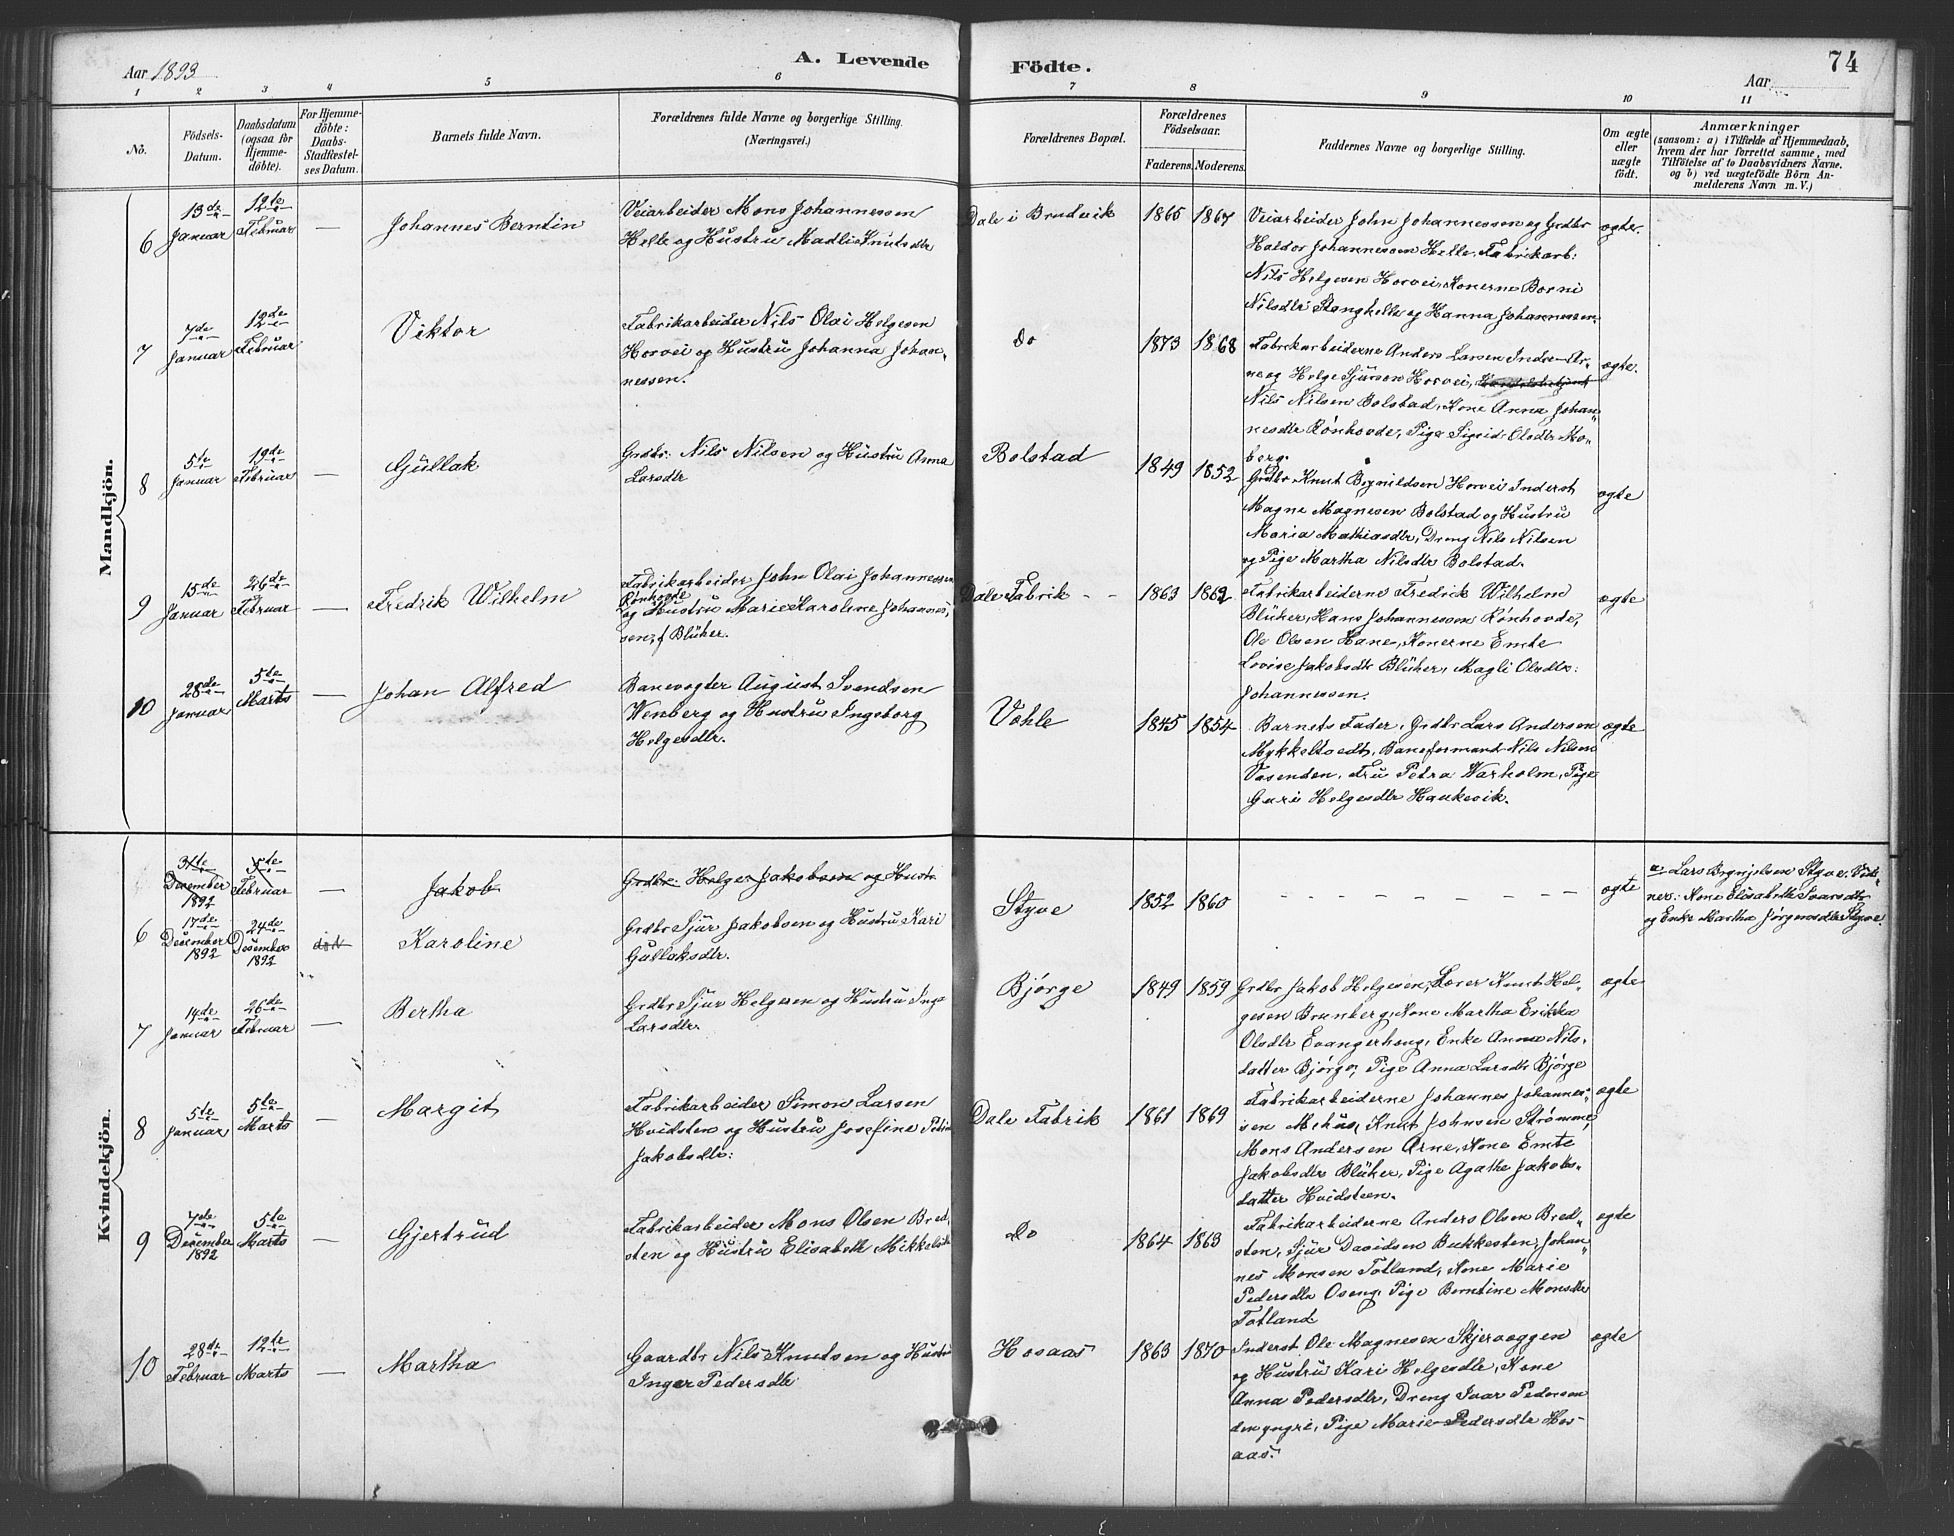 Aar 1893
A. Levende
Födte.
Aar
74
1 2 3 4 5 6 7 8 9 10 11
No.
Födsels-Datum.
Daabsdatum (ogsaa för Hjemmedöbte).
For Hjemmedöbte: Daabs-Stadfæstelses Datum.
Barnets fulde Navn.
Forældrenes fulde Navne og borgerlige Stilling. (Næringsvei.)
Forældrenes Bopæl.
Forældrenes Födselsaar.
Faderens. Moderens.
Faddernes Navne og borgerlige Stilling.
Om ægte eller uægte födt.
Anmærkninger
(saasom: a) i Tilfælde af Hjemmedaab, hvem der har forrettet samme, med Tilföielse af to Daabsvidners Navne. og b) ved uægtefödte Börn Anmelderens Navn m. V.)
Mandkjön.
6 13de Januar 12te Februar — Johannes Berntin
Veiarbeider Mons Johannessen
Helle og Hustru Madli Knutsdtr
Dale i Bruvik 1865 1867
Veiarbeider John Johannessen og Grdbr
Haldor Johannessen Helle, Fabrikarb:
Nils Helgesen Horvei, Konerne Borni
Nilsdtr Stanghelle og Hanna Johannessen.
ægte.
7 7de Januar 12de Februar Viktor
Fabrikarbeider Nils Olai Helgesen
Horvei og Hustru Johanna Johan-
nessen.
Do 1873 1868
Fabrikarbeiderne Anders Larsen Indre-Ar-
ne og Helge Sjursen Horvei,
Nils Nilsen Bolstad, Kone Anna Johan-
nesdtr Rønhovde, Pige Sigrid Olsdtr Mo-
berg.
ægte.
8 5te Januar 19de Februar — Gullak
Grdbr. Nils Nilsen og Hustru Anna
Larsdtr
Bolstad 1849 1852
Grdbr Knut Brynildsen Horvei Inderst
Magne Magnesen Bolstad og Hustru
Maria Mathiasdtr, Dreng Nils Nilsen
og Pige Martha Nilsdtr Bolstad.
ægte
9 15de Januar 26de Februar — Fredrik Wilhelm
Fabrikarbeider John Olai Johannessen
Rønhovde
og Hustru Marie Karoline Johannes-
sen, f Blüher.
Dale Fabrik - - 1863 1862
Fabrikarbeiderne Fredrik Wilhelm
Blüher, Hans Johannessen Rønhovde,
Ole Olsen Hane, Konerne Emte
Lovise Jakobsdtr Blüher, Magli Olsdtr:
Johannessen.
ægte
10 28de Januar 5te Marts — Johan Alfred
Banevogter August Svendsen
Wenberg og Hustru Ingeborg
Helgesdtr.
Vohle 1845 1854
Barnets Fader, Grdbr Lars Andersen
Mykkeltvedt, Baneformand Nils Nilsen
Vasenden, Fru Petra Warholm, Pige
Guri Helgesdtr Haukevik.
ægte
Kvindekjön.
6 31te Desember 1892 5te Februar — Jakob
Grdbr Helge Jakobsen og Hustr
17de Desember 1892 24de Desember 1892 død Karoline
Grdbr Sjur Jakobsen og Hustru Kari
Gullaksdtr.
Styve 1852 1860 - - - - - - ægte
a. Lars Brynjelsen Styve. Vid-
ner: Kone Elisabeth Ivarsdtr
og Enke Martha Jørgensdtr Styve.
7 14de Januar 26de Februar — Bertha
Grdbr Sjur Helgesen og Hustru Inga
Larsdtr.
Bjørge 1849 1859
Grdbr Jakob Helgesen, Lærer Knut Hel-
gesen Brunberg, Kone Martha Erikka
Olsdtr Evangerhaug, Enke Anna Nils-
datter Bjørge, Pige Anna Larsdtr Bjørge
ægte
8 5te Januar 5te Marts — Margit
Fabrikarbeider Simon Larsen
Hvidsten og Hustru Josefine Petrine
Jakobsdtr:
Dale Fabrik 1861 1869
Fabrikarbeiderne Johannes Johannes-
sen Mehus, Knut Johnsen Strømme,
Mons Andersen Arne, Kone Emte
Jakobsdtr Blüher, Pige Agathe Jakobs-
datter Hvidsteen.
ægte
9 7de Desember 1892 5te Marts — Gjertrud
Fabrikarbeider Mons Olsen Bred-
sten og Hustru Elisabeth Mikkelsdtr
Do 1864 1863
Fabrikarbeiderne Anders Olsen Bred-
sten, Sjur Davidsen Bukkesten, Johan-
nes Monsen Totland, Kone Marie
Pedersdtr Oseng, Pige Berntine Monsdtr
Totland
ægte
10 28de Februar 12te Marts — Martha
Gaardbr Nils Knutsen og Hustru
Inger Pedersdtr
Hosaas 1863 1870
Inderst Ole Magnesen Skjervæggen
og Hustru Kari Helgesdtr, Kone
Anna Pedersdtr, Dreng Ivar Pedersen
den yngre, Pige Marie Pedersdtr Hos-
aas.
ægte